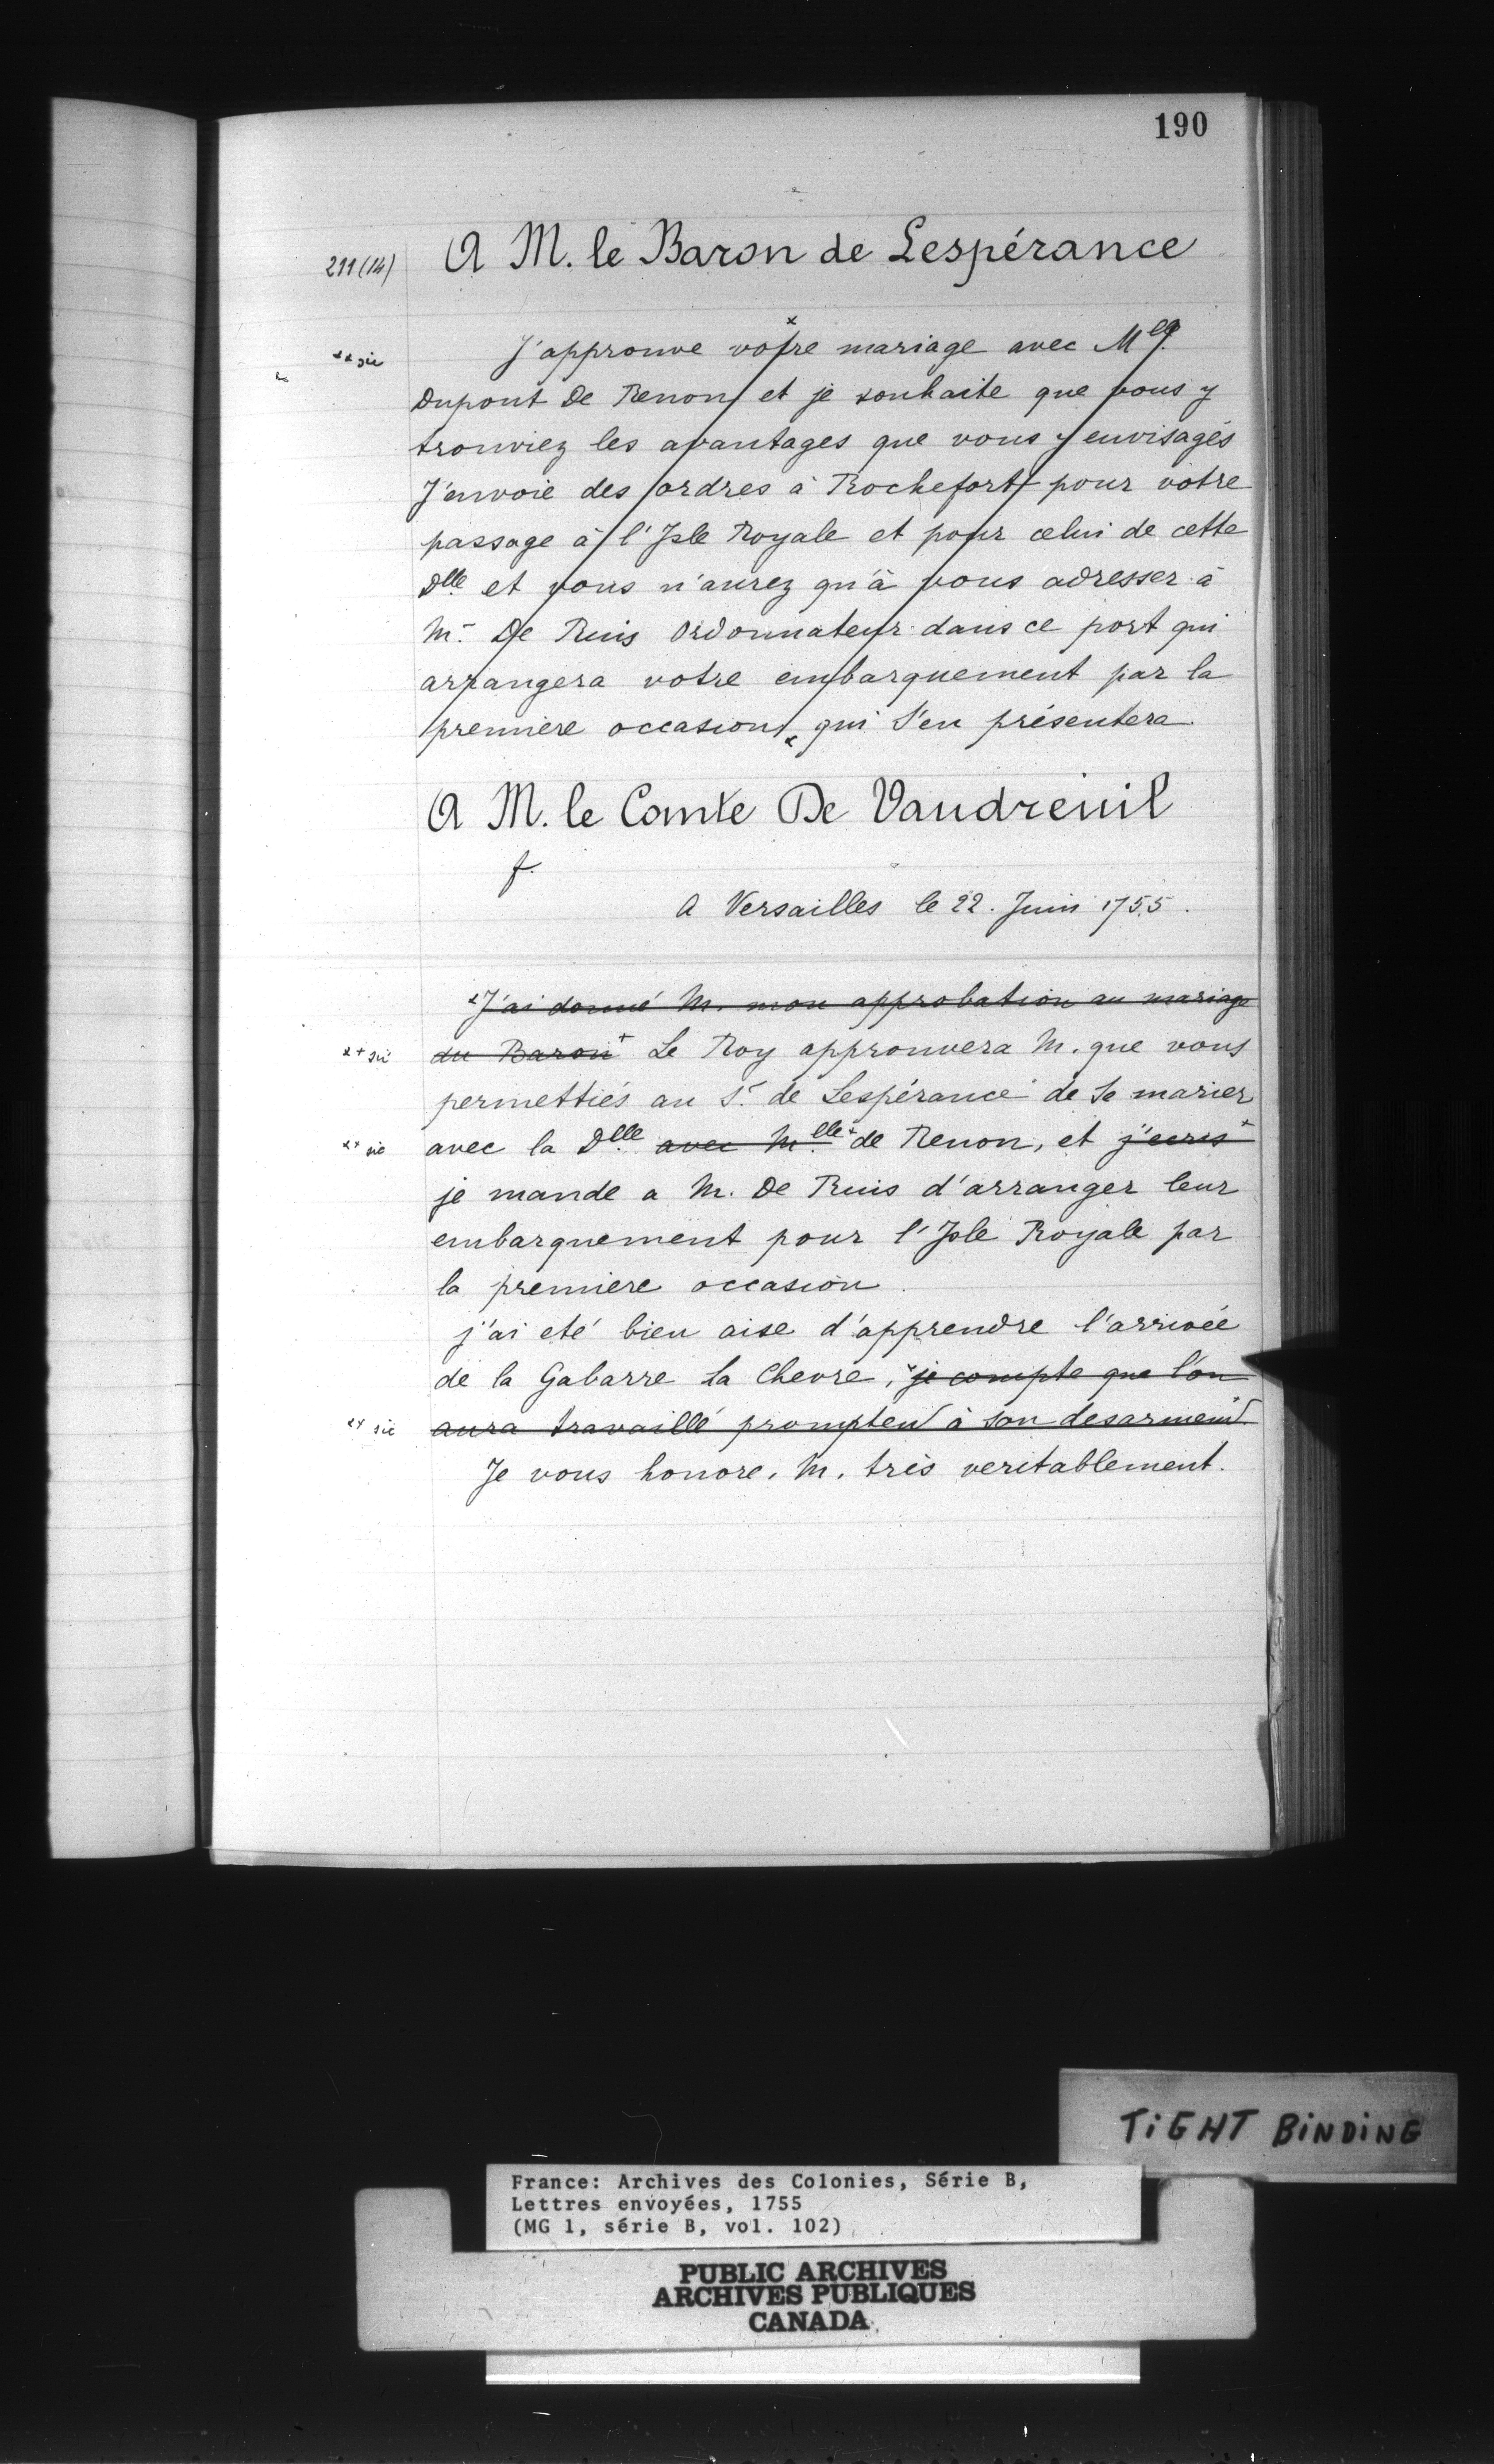 190
211 (14) A M. le Baron de Lespérance
x x sic J'approuve votre mariage avec Mlle
Dupont De Renon et je souhaite que vous y
trouviez les avantages que vous y envisagés
J'envoie des ordres à Rochefort pour votre
passage à l'Isle Royale et pour celui de cette
Dlle et vous n'aurez qu'à vous adresser à
Mr De Ruis Ordonnateur dans ce port qui
arrangera votre embarquement par la
premiere occasion x qui s'en présentera
A M. le Comte De Vaudreuil
f.
A Versailles le 22. Juin 1755.
x J'ai donné M. mon approbation au mariage
x + sic du Baron + Le Roy approuvera M. que vous
permettiés au Sr de Lespérance de se marier
x + sic avec la Dlle avec Melle + de Renon, et j'ecris +
je mande a M. De Ruis d'arranger leur
embarquement pour l'Isle Royale par
la premiere occasion.
j'ai eté bien aise d'apprendre l'arrivée
de la Gabarre la Chevre, x je compte que l'on
x x sic aura travaillé promptemt à son desarmemt x
Je vous honore, M. très veritablement.
TiGHT BiNDiNG
France: Archives des Colonies, Série B,
Lettres envoyées, 1755
(MG 1, série B, vol. 102)
PUBLIC ARCHIVES
ARCHIVES PUBLIQUES
CANADA